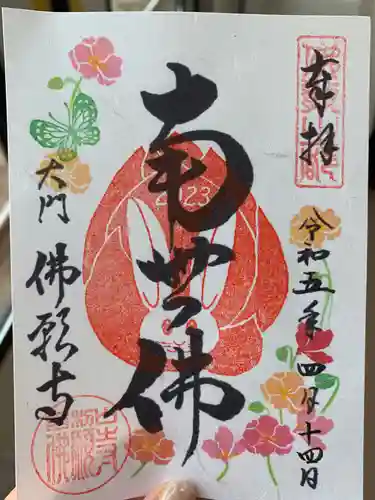 奉拝
令和五年四月十四日
南無佛
2023
大門 佛願寺